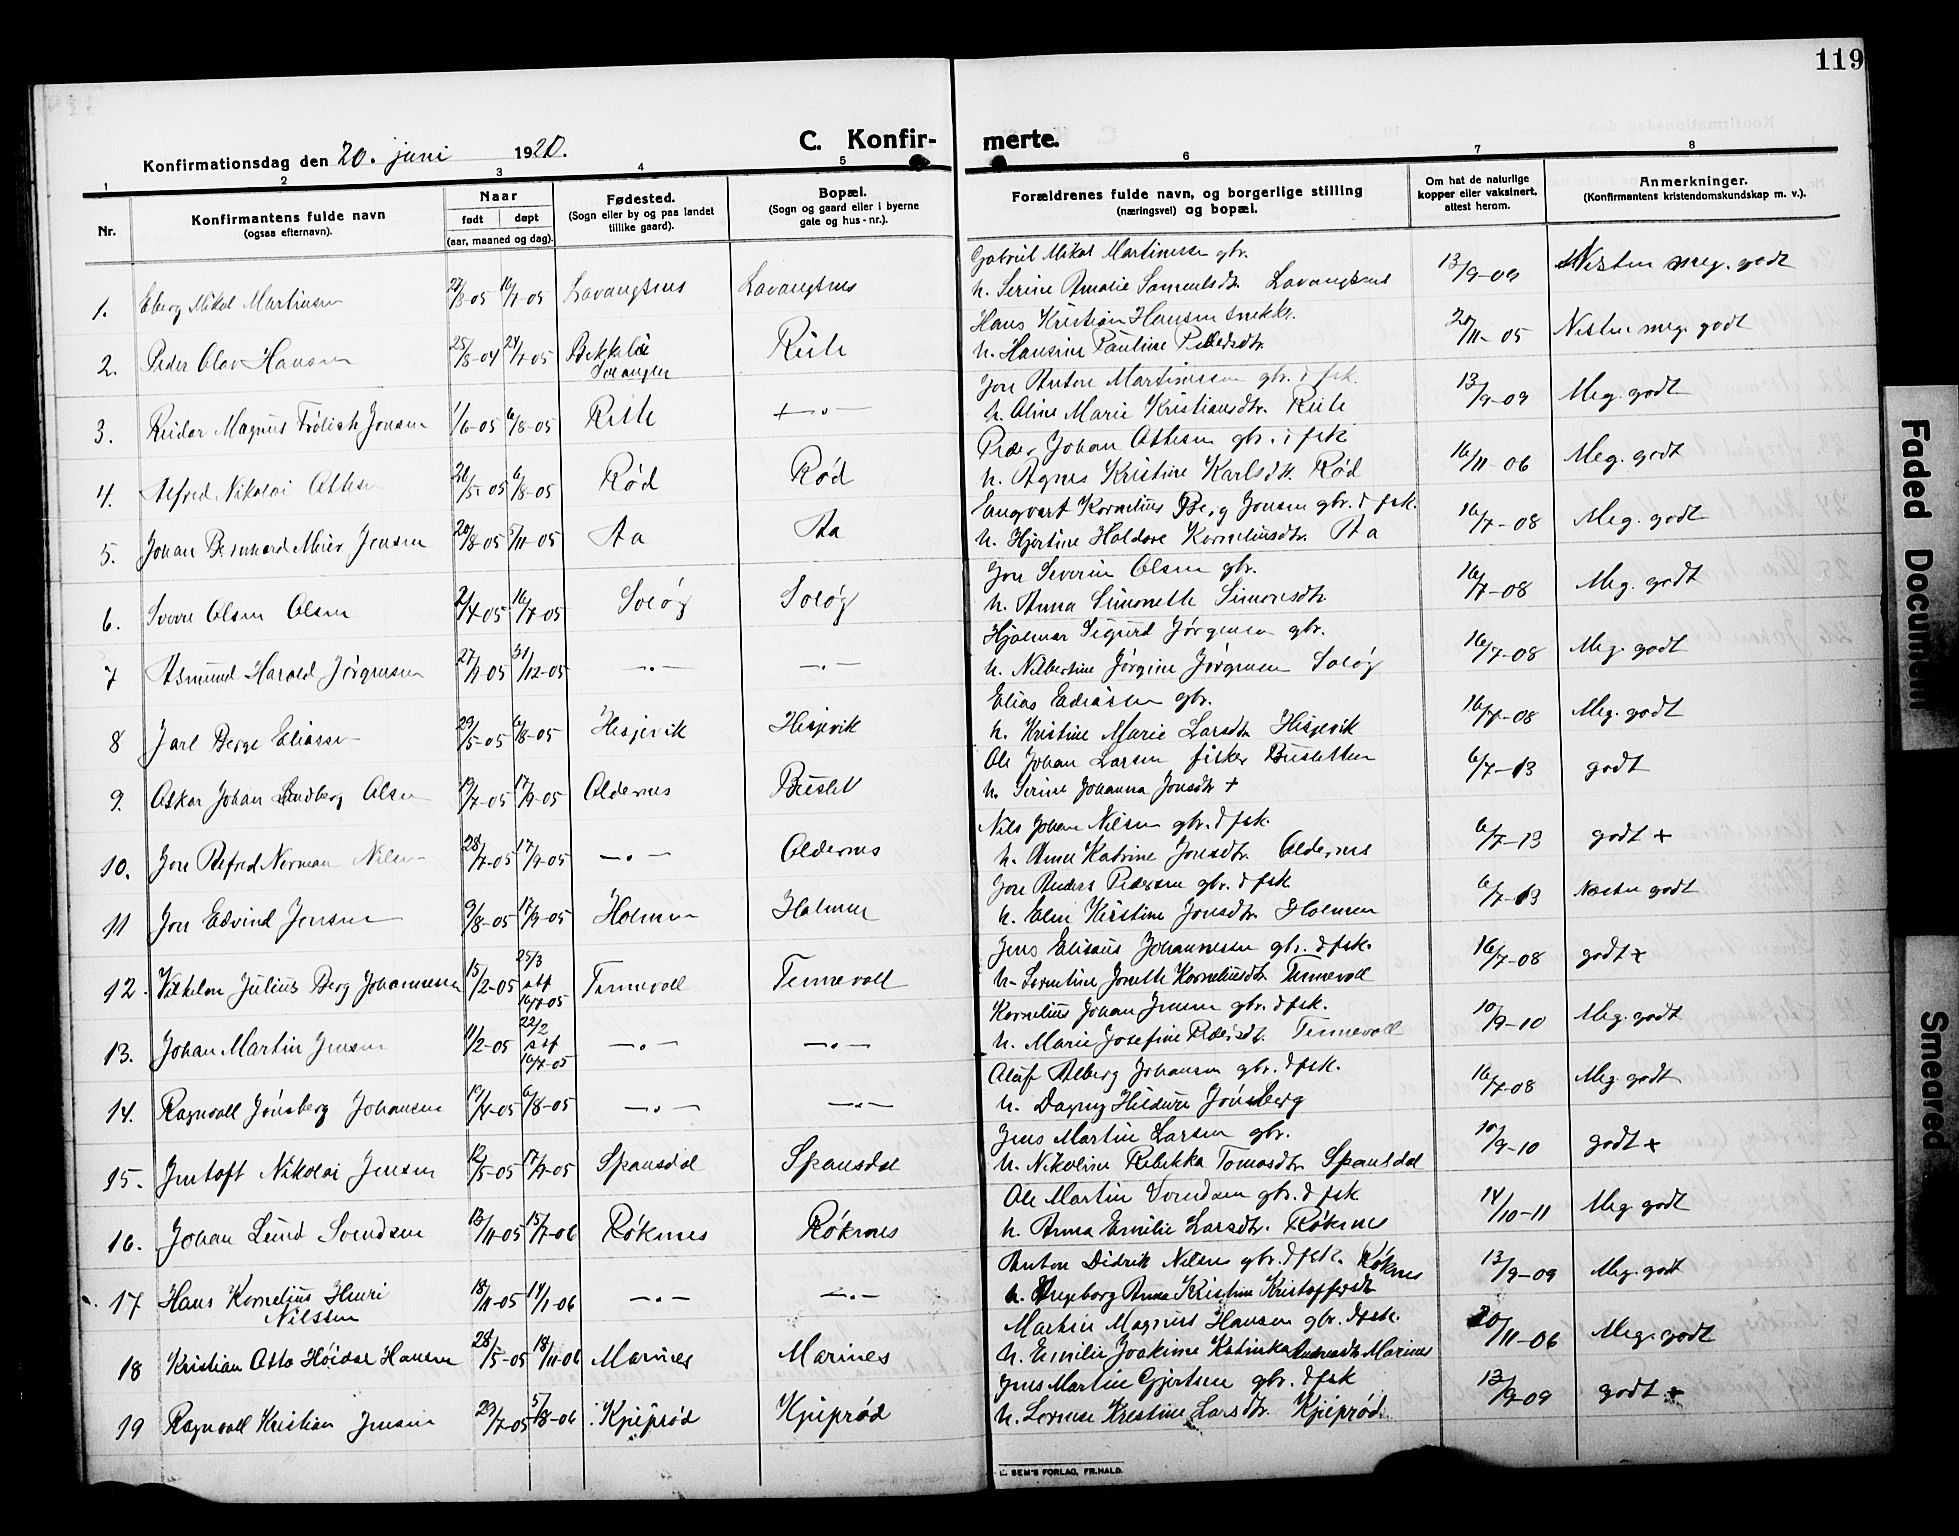 119
Konfirmationsdag den 20. juni 1920.
C. Konfir-
merte.
1 2 3 4 5 6 7 8
Nr.
Konfirmantens fulde navn
(ogsaa efternavn).
Naar
født døpt
(aar, maaned og dag).
Fødested.
(Sogn eller by og paa landet
tillike gaard).
Bopæl.
(Sogn og gaard eller i byerne
gate og hus-nr.).
Forældrenes fulde navn, og borgerlige stilling
(næringsvei) og bopæl.
Om hat de naturlige
kopper eller vaksinert,
attest herom.
Anmerkninger.
(Konfirmantens kristendomskundskap m. v.).
Gabriel Mikal Martinussen gbr.
1. Eberg Mikal Martinsen 27/3-05 16/7-05 Lavangsnes Lavangsnes
h. Serine Amalie Samuelsdtr. Lavangsnes 13/9-09 Næsten meg. godt
Hans Kristian Hansen snekkr.
2. Peder Olav Hansen 25/8-04 24/7-05 Bekkeli
Salangen
Rille
h. Hansine Pauline Pedersdtr. 20/11-05 Nesten meg. godt
Jon Anton Martinussen gbr. & fsk.
3. Reidar Magnus Frølich Jonsen 1/6-05 6/8-05 Rille — " —
h. Oline Marie Kristiansdtr. Rille 13/9-09 Meg. godt
Peder Johan Ottesen gbr. & fsk
4. Alfred Nikolai Ottesen 26/5-05 6/8-05 Rød Rød
h. Agnes Kristine Karlsdtr. Rød 16/11-06 Meg. godt
Engvart Kornelius Berg Jensen gbr. & fsk.
5. Johan Bernhard Meier Jensen 20/8-05 5/11-05 Aa Aa
h. Hjertine Haldore Korneliusdtr. Aa 16/7-08 Meg. godt
Jon Severin Olsen gbr.
6. Sverre Olsen Olsen 2/4-05 16/7-05 Soløy Soløy
h. Anna Simonette Simonsdtr. 16/7-08 Meg. godt
Hjalmar Sigurd Jørgensen gbr.
7 Asmund Harald Jørgensen 31/12-05 — " — — " —
h. Nilbertine Jørgine Jørgensen Soløy 16/7-08 Meg. godt
Elias Eliassen gbr.
8 Jarl Berge Eliassen 29/5-05 6/8-05 Hesjevik Hesjevik
h. Kristine Marie Larsdtr. Hesjevik 16/7-08 Meg. godt
Ole Johan Larsen fisker Busletten
9. Oskar Johan Lindberg Olsen 19/7-05 17/9-05 Aldernes Buslet
h. Serine Johanna Jonsdtr + 6/7-13 godt
Nils Johan Nilsen gbr. & fsk.
10. Jon Alfred Norman Nilsen 28/7-05 17/9-05 — " — Aldernes
h. Anne Katrine Jonsdtr. Aldernes 6/7-13 godt +
Jon Anders Pedersen gbr. & fsk
11 Jon Edvind Jensen 9/8-05 17/9-05 Holmen Holmen
h. Elen Kirstine Jonsdtr. Holmen 6/7-13 Næsten godt
Jens Elisæus Johannesen gbr. & fsk.
12. Vilhelm Julius Berg Johannesen 15/2-05 25/3
stf
16/7-05
Tennevoll Tennevoll
h. Serentine Jonette Korneliusdtr. Tennevoll 16/7-08 godt +
Kornelius Johan Jensen gbr. & fsk.
13. Johan Martin Jensen 11/2-05 22/2
stf
16/7-05
— " — — " —
h. Marie Josefine Pedersdtr. Tennevoll 10/9-10 Meg. godt
Olaf Alberg Johansen gbr. & fsk.
14. Ragnvall Jønsberg Johansen 19/4-05 6/8-05 — " — — " —
h. Dagny Hildur Jønsberg 16/7-08 Meg. godt
Jens Martin Larsen gbr.
15. Jentoft Nikolai Jensen 12/5-05 17/7-05 Spansdal Spansdal
h. Nikoline Rebekka Tomasdtr. Spansdal 10/9-10 godt +
Ole Martin Svendsen gbr. & fsk
16. Johan Lund Svendsen 13/11-05 15/7-06 Røknes Røknes
h. Anna Emilie Larsdtr. Røknes 14/10-11 Meg. godt
Anton Didrik Nilsen gbr. & fsk. Røknes
17 Hans Kornelius Henri
Nilssen
18/11-05 14/1-06 — " — — " —
h. Ingeborg Anna Kristine Kristoffersdtr 13/9-09 Meg. godt
Martin Magnus Hansen gbr. & fsk.
18 Kristian Otto Høidal Hansen 28/5-05 18/11-06 Marines Marines
h. Emilie Joakime Katinka Andreasdtr. Marines 20/11-06 Meg. godt
Jens Martin Gjertsen gbr. & fsk
19 Ragnvall Kristian Jensen 29/7-05 5/8-06 Kjeiprød Kjeiprød
h. Lornse Kristine Larsdtr. Kjeiprød. 13/9-09 godt +
SEM'S FORLAG, FR.HALD.
Faded Document
Smeared